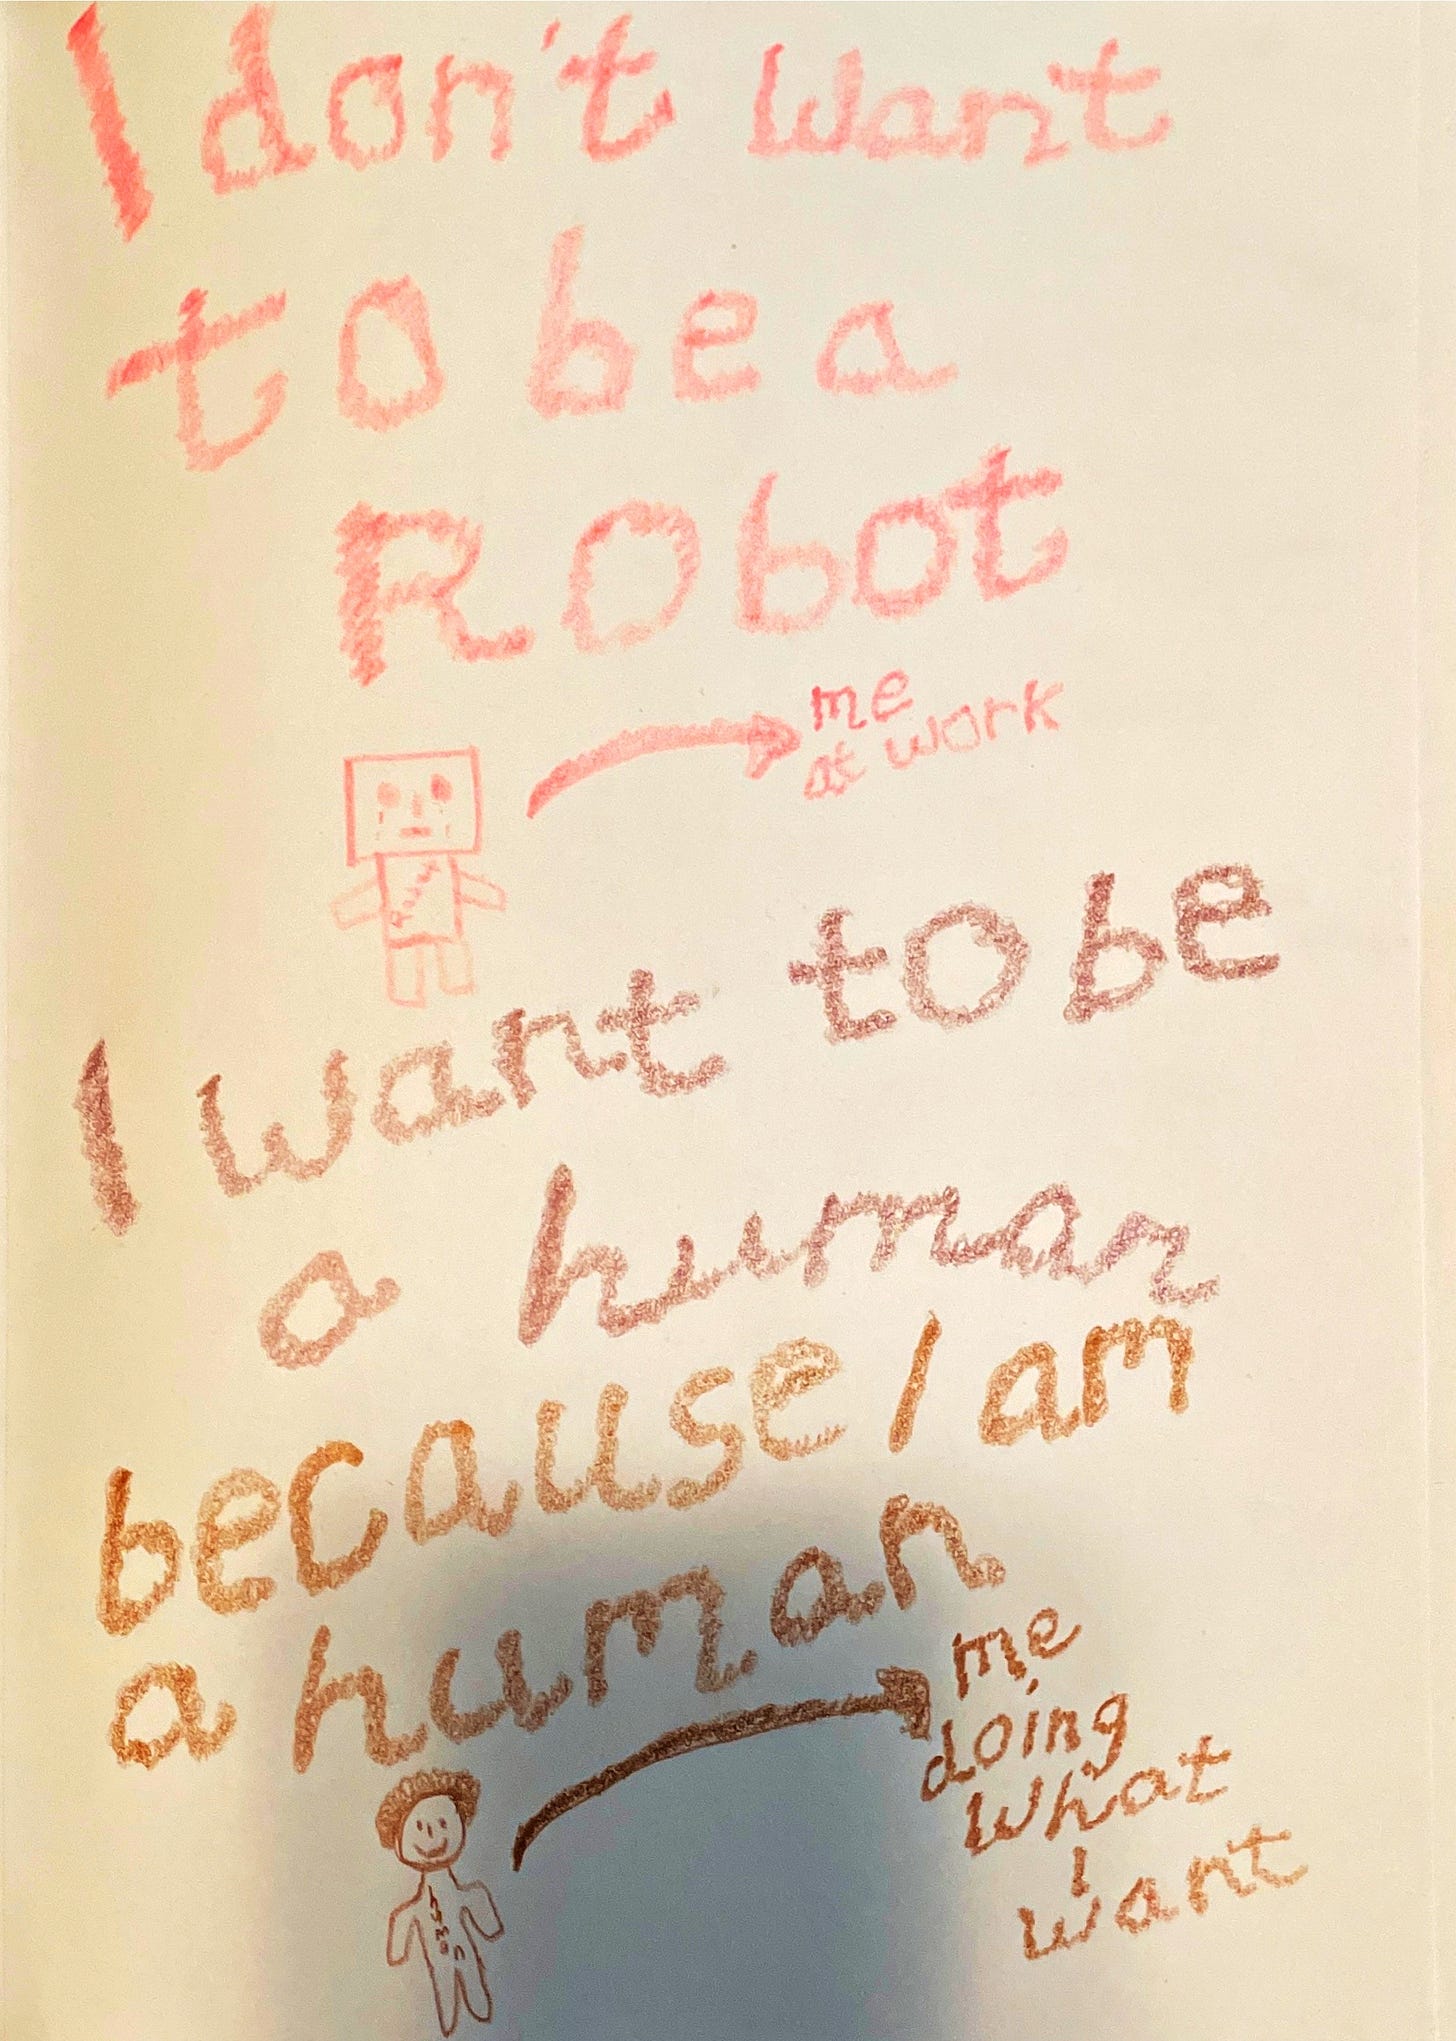 I don't want
to be a
Robot
me
at work
Robot
I want to be
a human
because I am
a human
me
doing
what
I
want
human